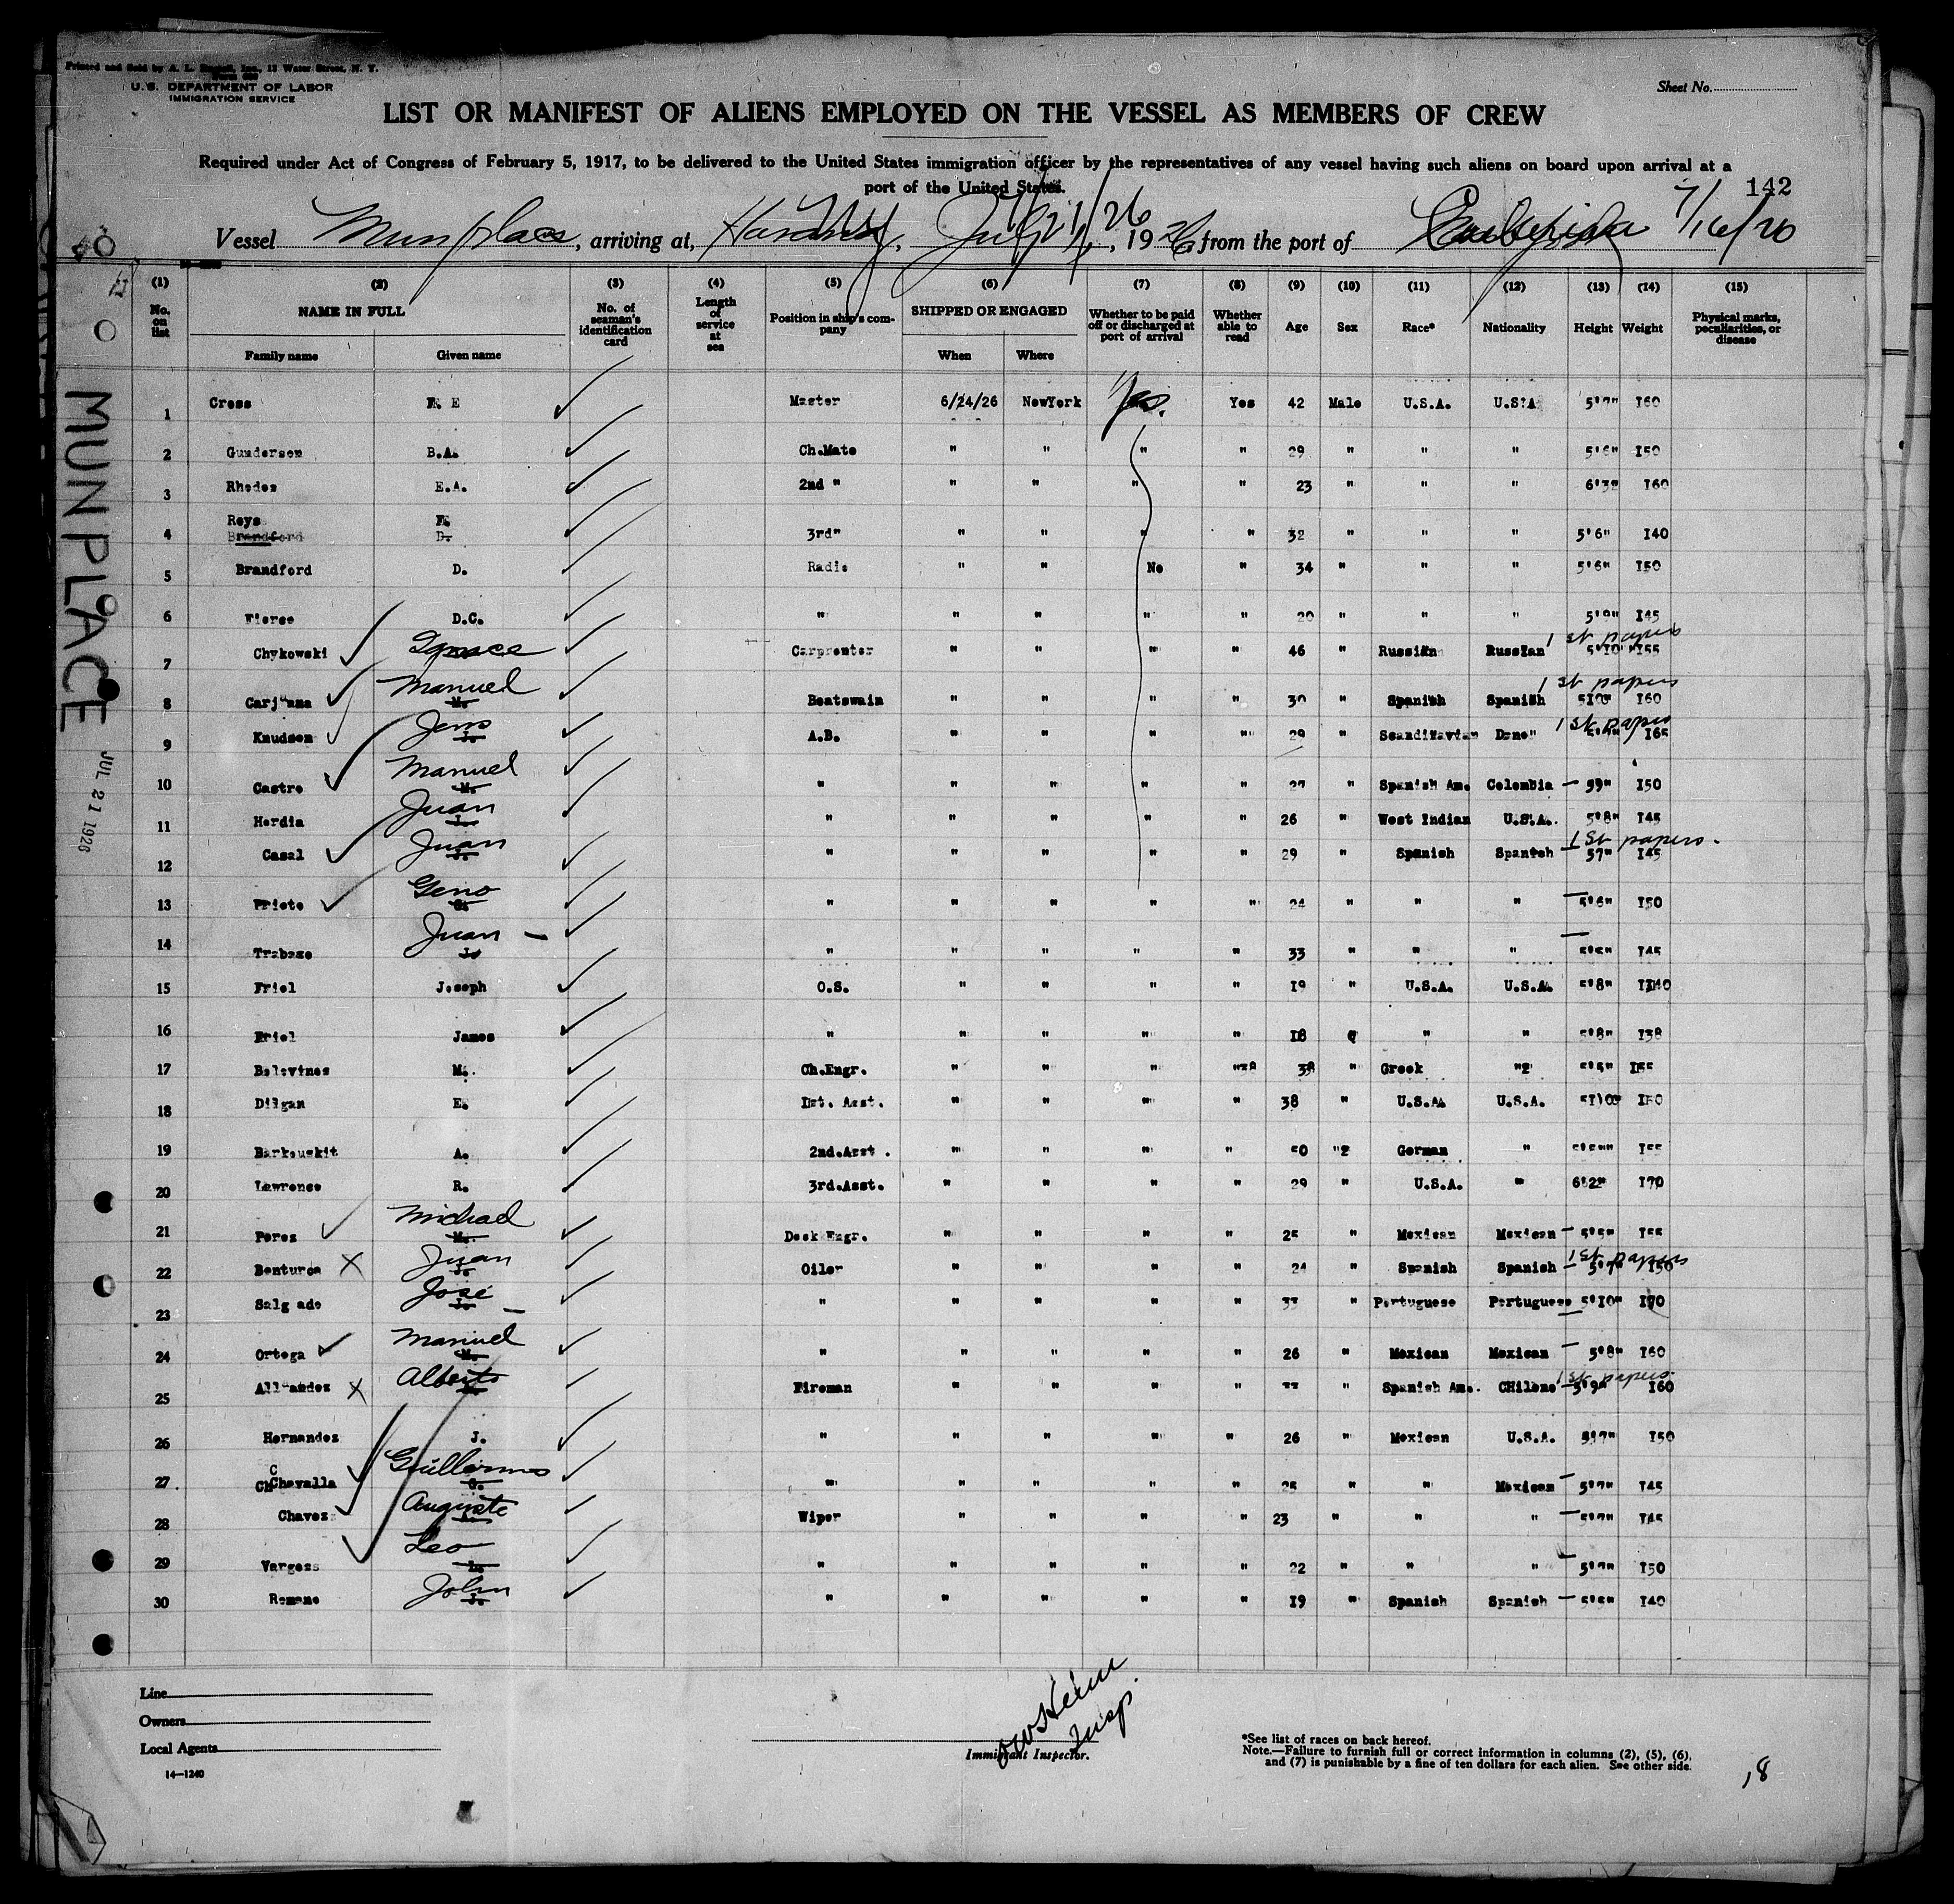 Printed and Sold by A. L. Inc., 12 Water Street, N. Y.
U.S. DEPARTMENT OF LABOR
IMMIGRATION SERVICE
Sheet No.
LIST OR MANIFEST OF ALIENS EMPLOYED ON THE VESSEL AS MEMBERS OF CREW
Required under Act of Congress of February 5, 1917, to be delivered to the United States immigration officer by the representatives of any vessel having such aliens on board upon arrival at a
port of the United States.
142
Vessel Munplace, arriving at, July 21/26, 1926, from the port of 7/16/26
MUNPLACE
JUL 21 1926
(1) (2) (3) (4) (5) (6) (7) (8) (9) (10) (11) (12) (13) (14) (15)
No. on list NAME IN FULL No. of seaman's identification card Length of service at sea Position in ship's company SHIPPED OR ENGAGED Whether to be paid off or discharged at port of arrival Whether able to read Age Sex Race* Nationality Height Weight Physical marks, peculiarities, or disease
Family name Given name When Where
1 Cross E Master 6/24/26 NewYork Yes. Yes 42 Male U.S.A. U.S.A 5'7" I60
2 Gunderson B.A. Ch.Mate " " " " 29 " " " 5'6" I50
3 Rhodes E.A. 2nd " " " " " 23 " " " 6'3" I60
4 Roys Brandford D. 3rd" " " " " 32 " " " 5'6" I40
5 Brandford D. Radio " " No " 34 " " " 5'6" I50
6 D.C. " " " " " 20 " " " 5'9" I45
7 Chykowski Ignace Carpenter " " " " 46 " Russian Russian 1st papers 5'10" I55
8 Manuel M. Boatswain " " " " 30 " Spanish Spanish 1st papers 5I0" I60
9 Knudsen Jens J. A.B. " " " " 29 " Scandinavian Dane" 1st papers I65
10 Castro Manuel M. " " " " " 27 " Spanish Am. Colombia 59" I50
11 Herdia Juan J. " " " " " 26 " West Indian U.S.A. 5'8" I45
12 Casal Juan J. " " " " " 29 " Spanish Spanish 1st papers. 57" I45
13 Prieto Geno G. " " " " " 24 " " " 5'6" I50
14 Trabazo Juan J. " " " " " 33 " " " 5'5" I45
15 Friel Joseph O.S. " " " " I9 " U.S.A. U.S.A. 5'8" I40
16 Friel James " " " " " I8 " " 5'8" I38
17 Bolovines M. Ch.Engr. " " " " 38 " Greek " 5'5" I55
18 Dilgan E. Ist. Asst. " " " " 38 " U.S.A. U.S.A.
19 Barkouskit A. 2nd.Asst. " " " " 50 " German " I55
20 Lawrence R. 3rd.Asst. " " " " 29 " U.S.A. " 6'2" I70
21 Perez Michael M. Deck Engr. " " " " 25 " Mexican Mexican 5'5" I55
22 Benturca Juan J. Oiler " " " " 24 " Spanish Spanish 1st papers 5'7" I50
23 Salgado José J. " " " " " 33 " Portuguese Portuguese 5'I0" I70
24 Ortega Manuel M. " " " " " 26 " Mexican Mexican 5'8" I60
25 Alberto Fireman " " " " " Spanish Am. CHilene 1st papers 5'9" I60
26 Hernandez J. " " " " " 26 " Mexican U.S.A. 5'7" I50
27 Chavalla Guillermo G. " " " " " 25 " " Mexican 5'7" I45
28 Chavez Auguste A. Wiper " " " " 23 " " " 5'7" I45
29 Vargess Leo L. " " " " " 22 " " " 5'7" I50
30 Romano John J. " " " " " I9 " Spanish Spanish 5'5" I40
Line
Owners
Local Agents
14—1240
Insp.
Immigrant Inspector.
*See list of races on back hereof.
Note.—Failure to furnish full or correct information in columns (2), (5), (6),
and (7) is punishable by a fine of ten dollars for each alien. See other side.
18